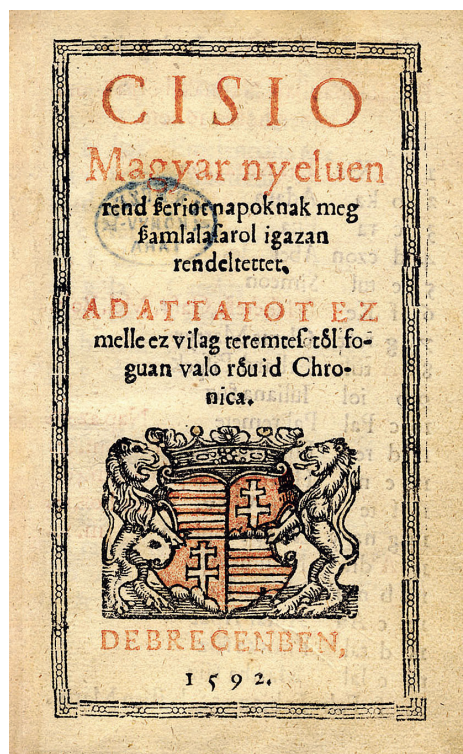 CISIO
Magyar nyeluen
rend ßeriĩt napoknak meg
ßamlalaſarol igazan
rendeltettet.
ADATTATOT EZ
melle ez vilag teremteſ től fo-
guan valo rőuid Chro-
nica.
DEBRECENBEN,
1592.